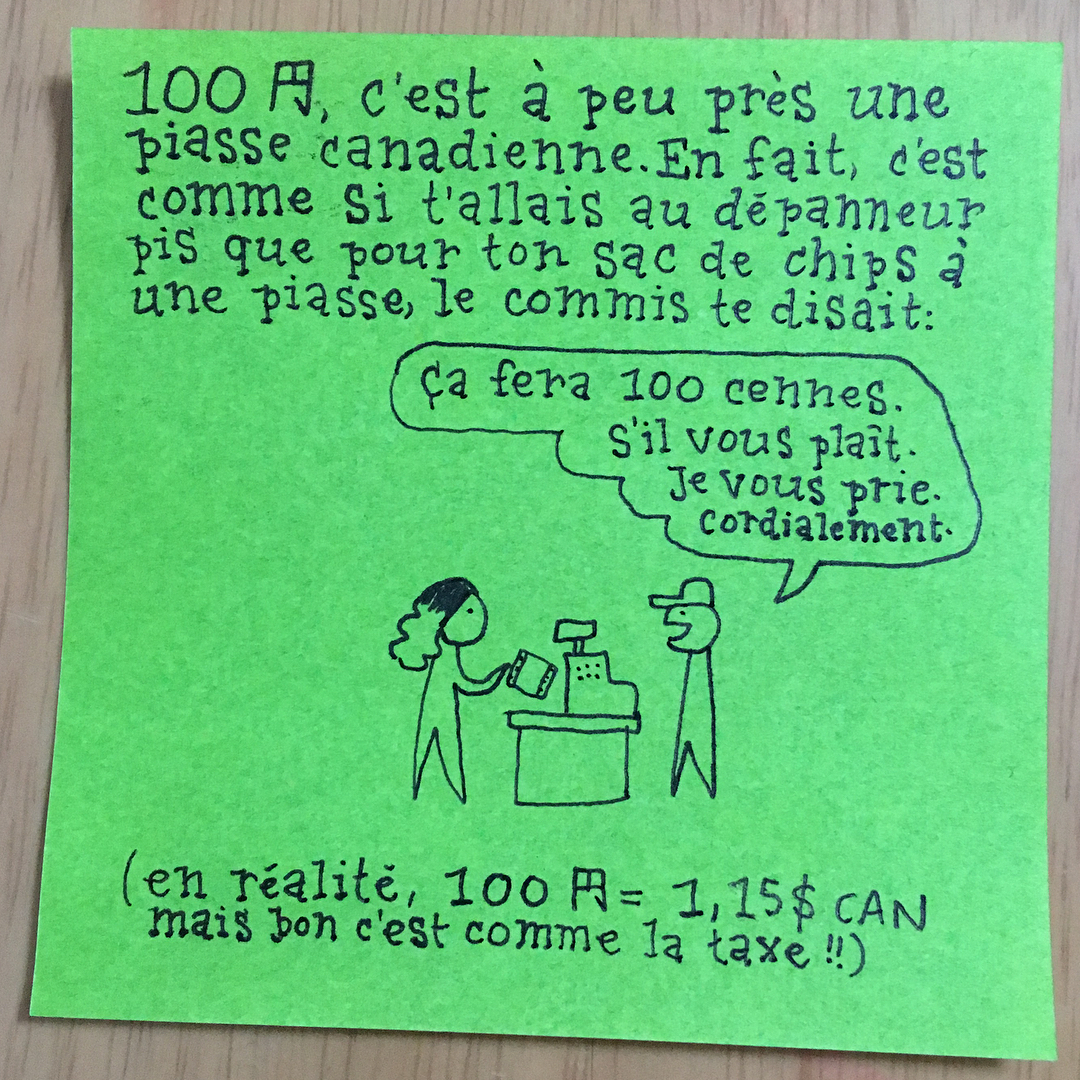 100 円, c'est à peu près une
piasse canadienne. En fait, c'est
comme si t'allais au dépanneur
pis que pour ton sac de chips à
une piasse, le commis te disait:
Ça fera 100 cennes.
S'il vous plaît.
Je vous prie.
Cordialement.
(en réalité, 100 円 = 1,15$ CAN
mais bon c'est comme la taxe !!)